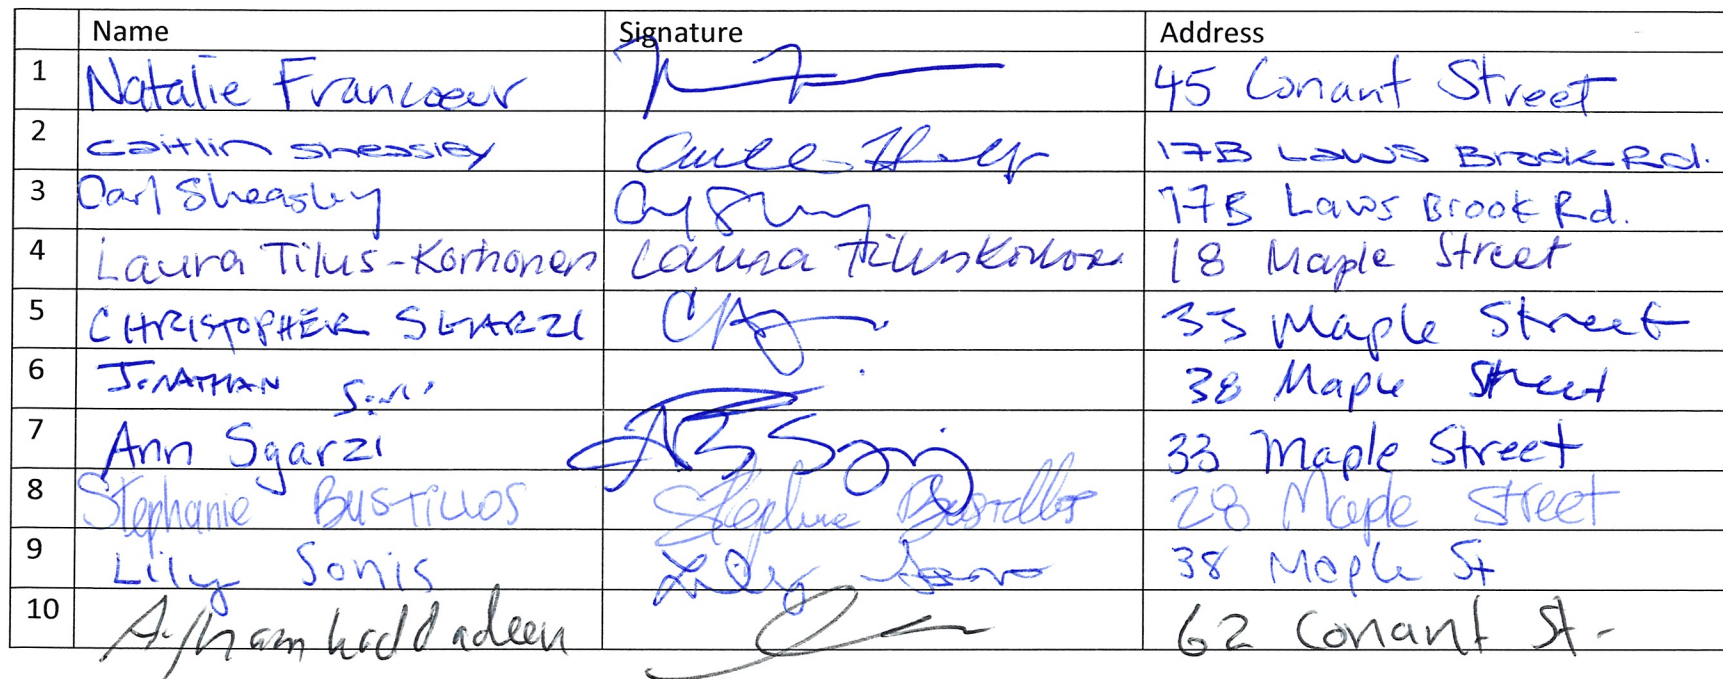 Name Signature Address
1 Natalie Francoeur 45 Conant Street
2 Caitlin Sheasley 17B Laws Brook Rd.
3 Carl Sheasley 17B Laws Brook Rd.
4 Laura Tilus-Korhonen Laura Tilus-Korhonen 18 Maple Street
5 CHRISTOPHER SGARZI 33 Maple Street
6 JONATHAN 38 Maple Street
7 Ann Sgarzi 33 Maple Street
8 Stephanie BUSTILLOS Stephanie Bustillos 28 Maple Street
9 Lily Sonis Lily 38 Maple St
10 haddadeen 62 Conant St.